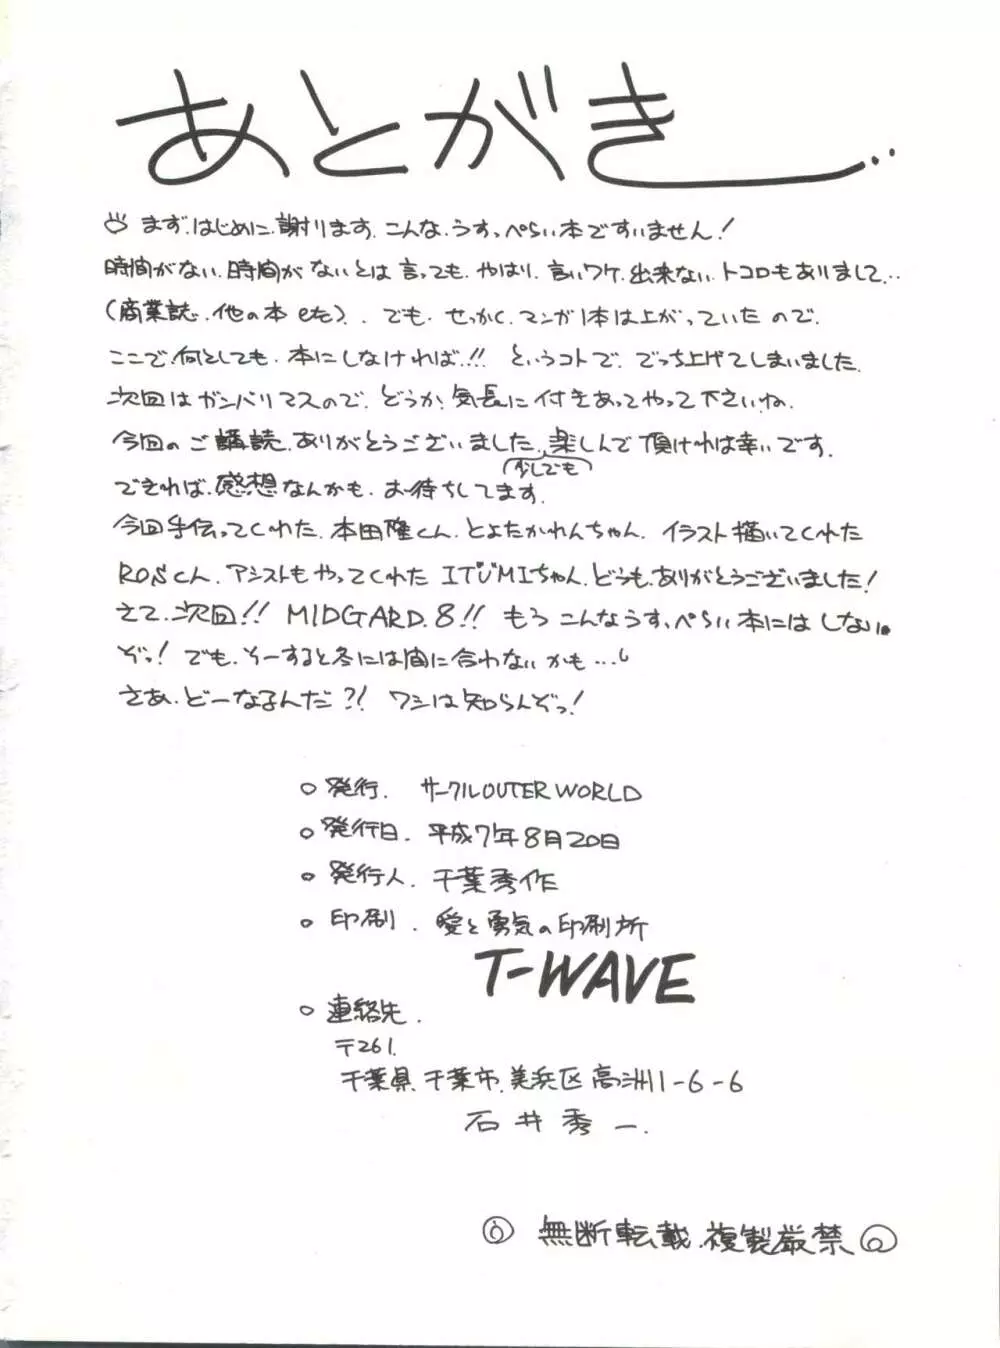 あとがき...
まず、はじめに、謝ります。こんな、うすっぺらい本ですいません！
時間がない、時間がないとは言っても、やはり、言いワケ、出来ない、トコロもありまして…
(商業誌、他の本 etc)、でも、せっかく、マンガ1本は上がっていたので、
ここで、何としても、本にしなければ…!! というコトで、でっち上げてしまいました。
次回はガンバリマスので、どうか、気長に付きあってやって下さいね。
今回のご購読、ありがとうございました、楽しんで頂ければ幸いです。
少しでも
できれば、感想なんかも、お待ちしてます。
今回手伝ってくれた、本田隆くん、とよたかれんちゃん、イラスト描いてくれた
ROSくん、アシストもやってくれたITUMIちゃん、どうも、ありがとうございました！
さて、次回!! MIDGARD.8!! もう こんなうすっぺらい本にはしない
ぞっ！でも、そーすると冬には間に合わないかも…。
さあ、どーなるんだ?! ワシは知らんぞっ！
○ 発行. サークルOUTER WORLD
○ 発行日. 平成7年8月20日
○ 発行人. 千葉秀作
○ 印刷. 愛と勇気の印刷所
T-WAVE
○ 連絡先.
〒261.
千葉県.千葉市.美浜区高洲1-6-6
石井秀一.
無断転載.複製厳禁